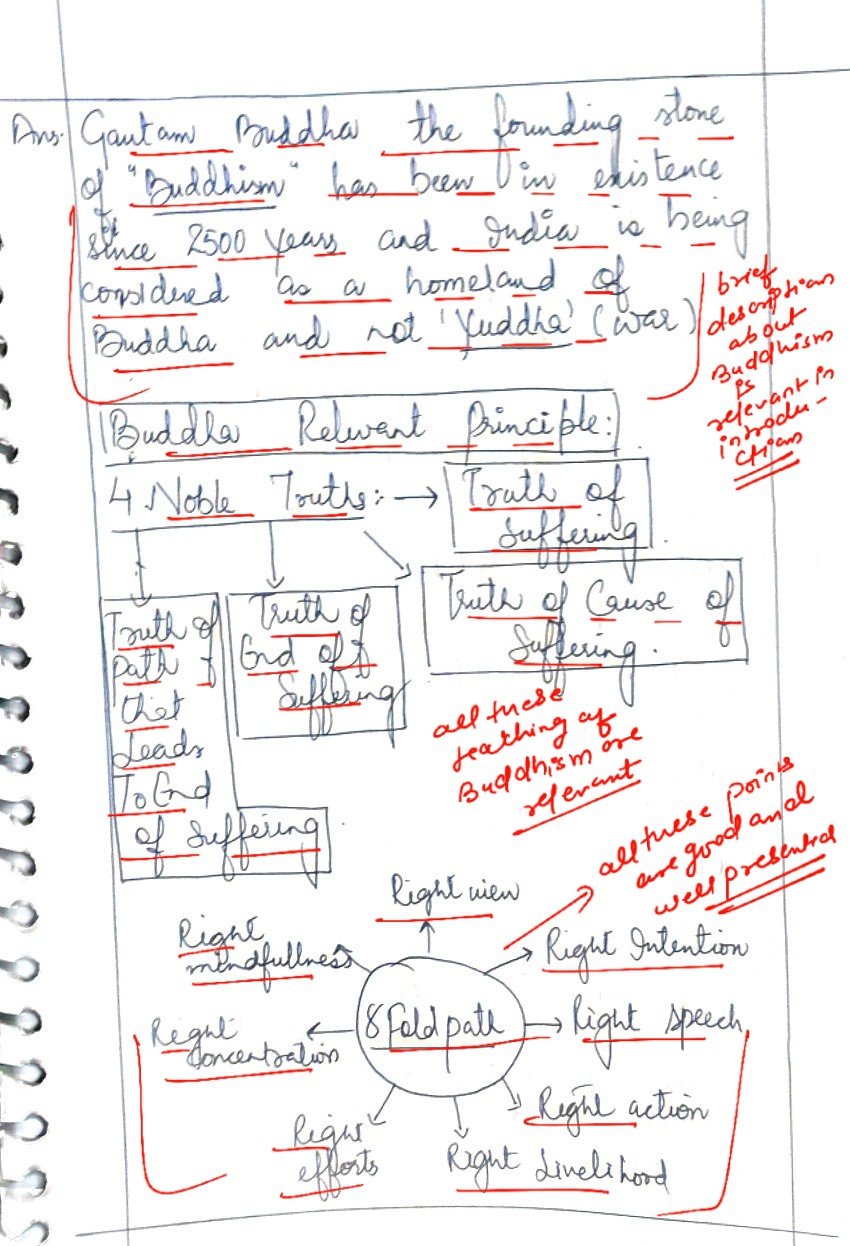 Ans. Gautam Buddha the founding stone
of "Buddhism" has been in existence
since 2500 years and India is being
considered as a homeland of
Buddha and not 'Yuddha' (war)
brief
description
about
Buddhism
is
relevant in
introdu-
ction
Buddha Relevant Principle:
4 Noble Truths: → Truth of
Suffering.
Truth of Cause of
Suffering.
Truth of
End of
Suffering
Truth of
Path
that
Leads
To End
of Suffering.
all these
teaching of
Buddhism are
relevant
all these points
are good and
well presented
8 Fold path
Right view
Right Intention
Right speech
Right action
Right Livelihood
Right
efforts
Right
Concentration
Right
mindfullness